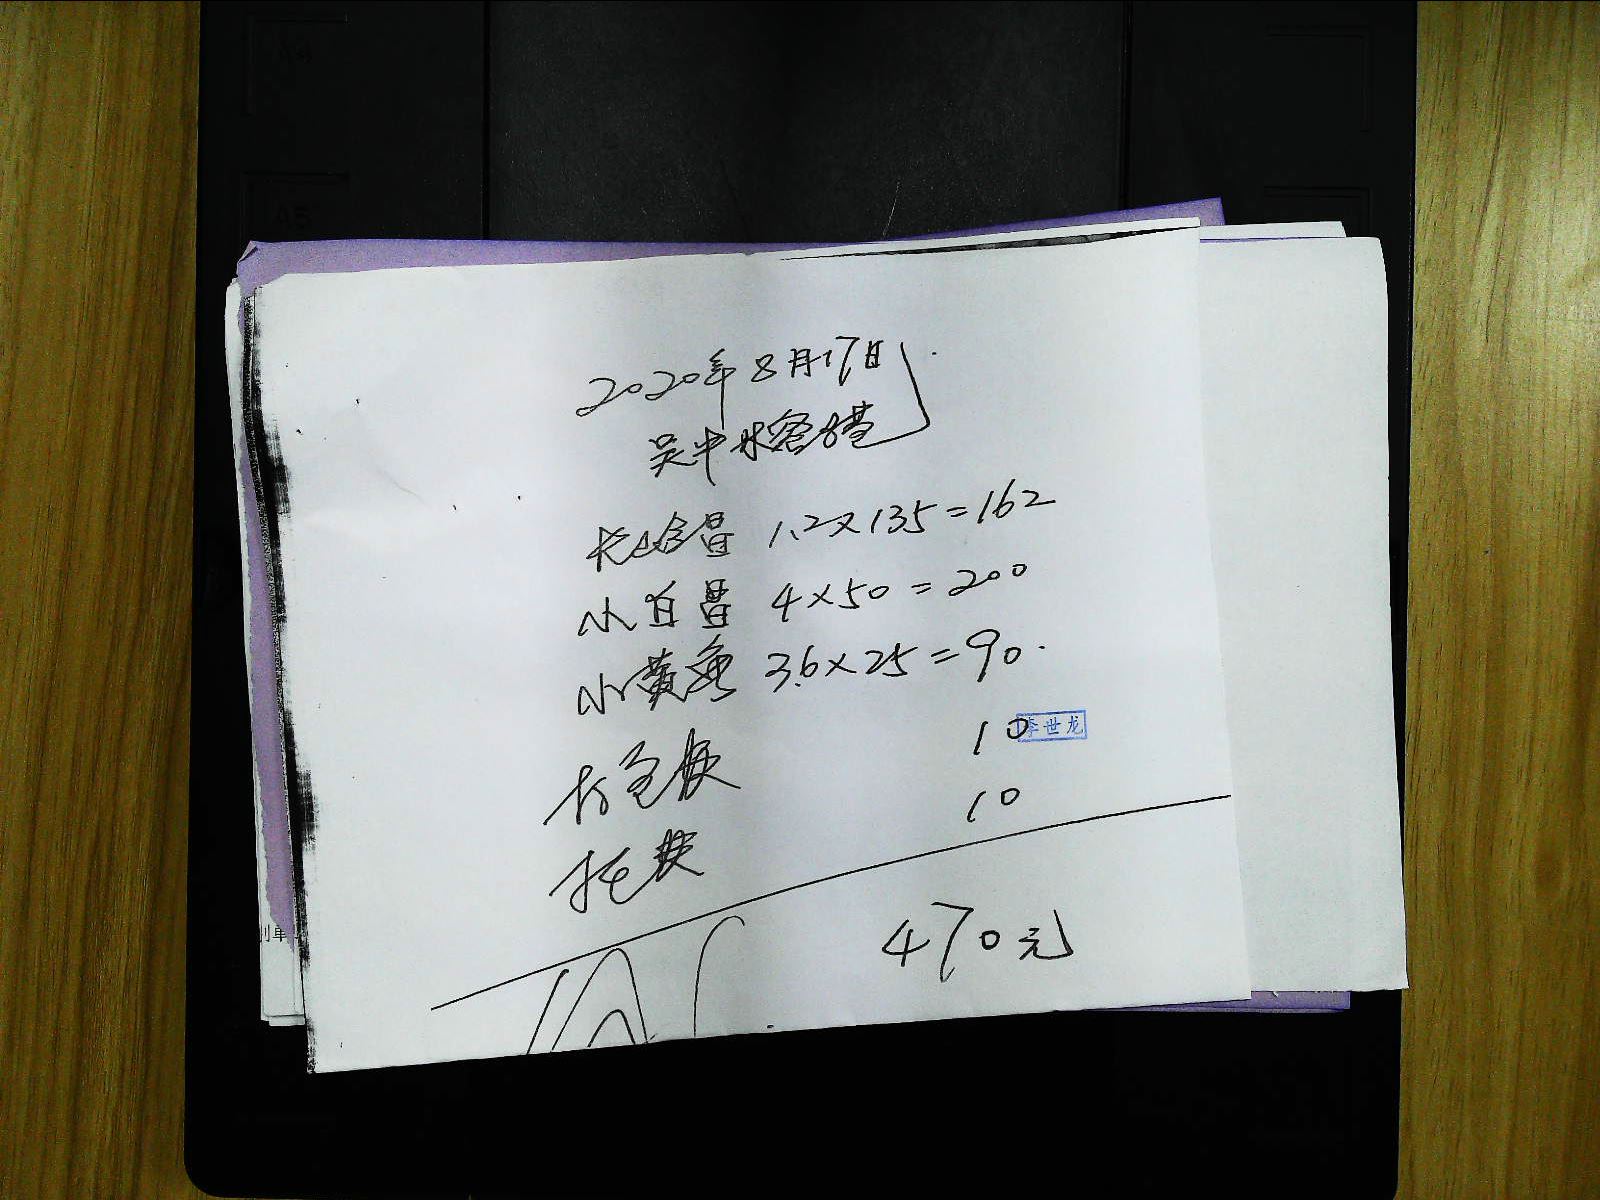 A4
A5
2020年8月17日
吴中水
长 1.2×135=162
小白 4×50=200
小黄鱼 3.6×25=90.
打包费 10
李世龙
托费 10
470元